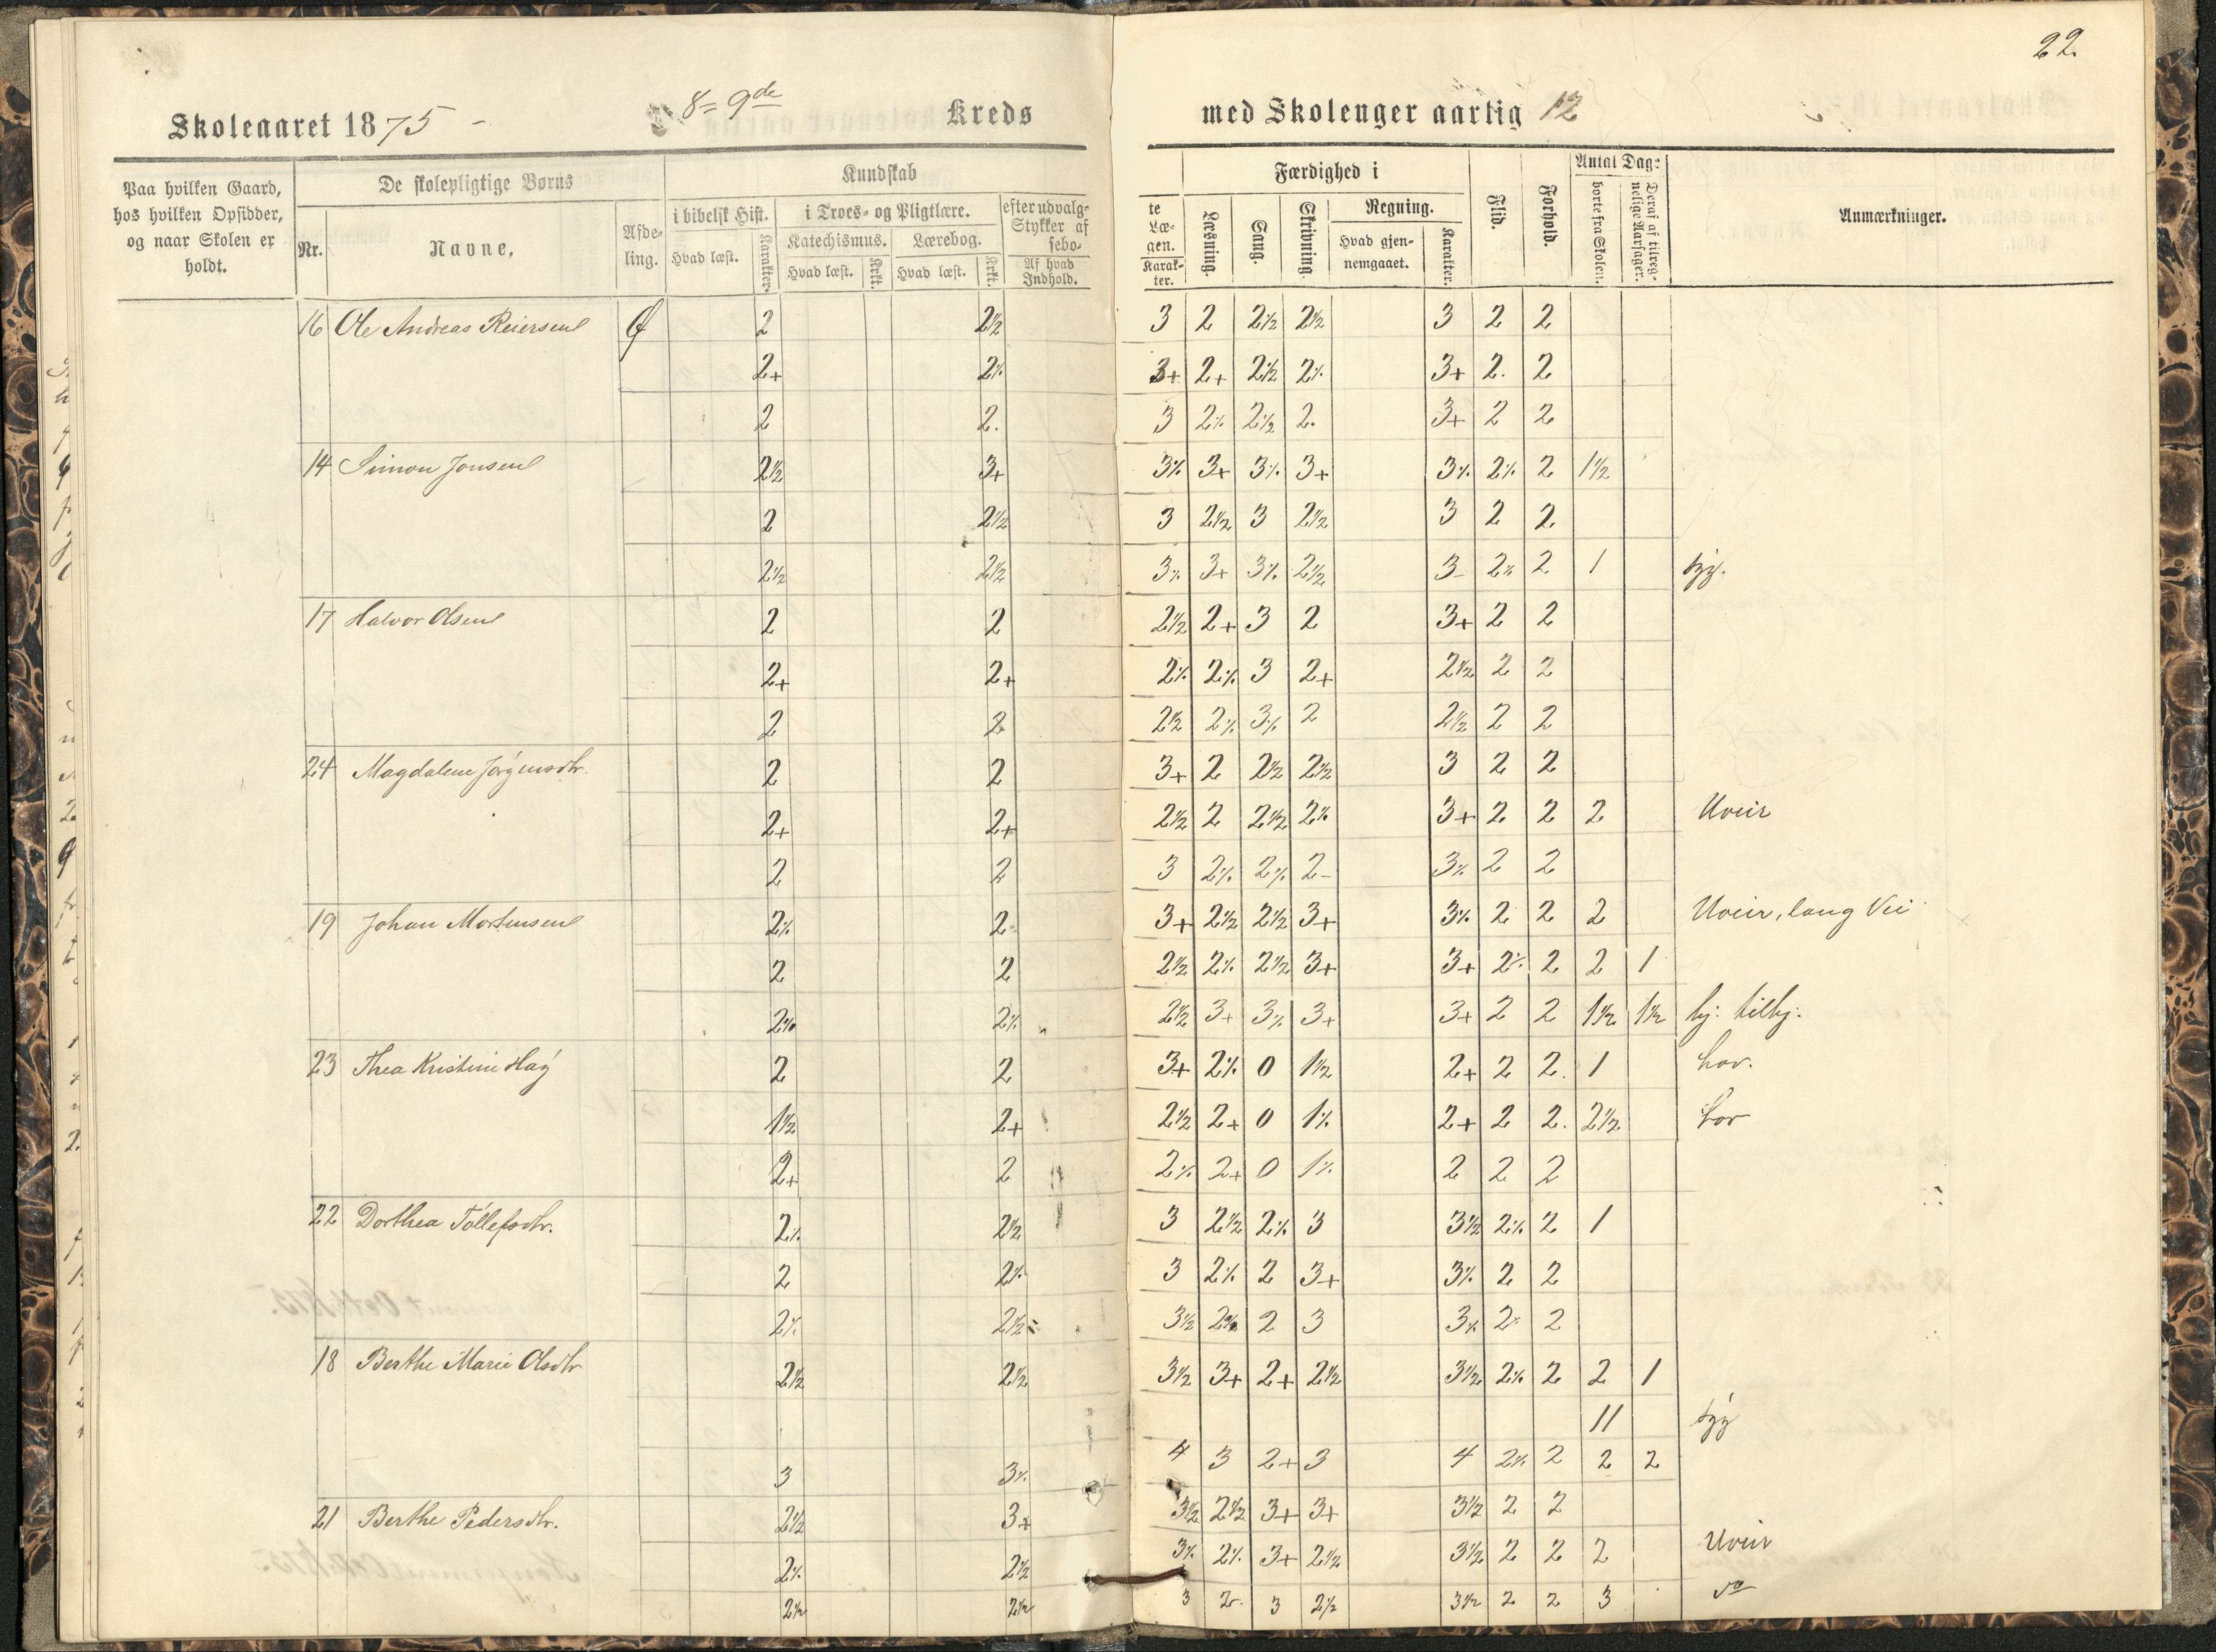 22.
Skoleaaret 1875 - 8= 9de Kreds med Skolenger aarlig 12
Paa hvilken Gaard, hos hvilken Opsidder, og naar Skolen er holdt.
De skolepligtige Børns
Nr. Navne. Afdeling.
Kundskab
i bibelsk Hist. i Troes- og Pligtlære. efter udvalg-
Hvad læst. Karakter. Katechismus. Lærebog. Stykker af
Hvad læst. Krkt. Hvad læst. Krkt. sebo-
Af hvad Indhold.
te Læ-
gen.
Karakter.
Færdighed i
Læsning. Sang. Skrivning. Regning.
Hvad gjennemgaaet. Karakter.
Flid. Forhold.
Antal Dage
borte fra Skolen. Deraf af tilregnelige Aarsager.
Anmærkninger.
16 Ole Andreas Reiersen Ø 2 2½ 3 2 2½ 2½ 3 2 2
2+ 2% 3+ 2+ 2½ 2% 3+ 2. 2
2 2. 3 2% 2½ 2. 3+ 2 2
14 Simon Jonsen 2½ 3+ 3% 3+ 3% 3+ 3% 2% 2 1½
2 2½ 3 2½ 3 2½ 3 2 2
2½ 2½ 3% 3+ 3% 2½ 3- 2% 2 1 syg.
17 Halvor Olsen 2 2 2½ 2+ 3 2 3+ 2 2
2+ 2+ 2% 2% 3 2+ 2½ 2 2
2 2 2½ 2% 3% 2 2½ 2 2
24 Magdalene Jørgensdtr. 2 2 3+ 2 2½ 2½ 3 2 2
2+ 2+ 2½ 2 2½ 2% 3+ 2 2 2 Uveir
2 2 3 2% 2% 2- 3% 2 2
19 Johan Mortensen 2% 2- 3+ 2½ 2½ 3+ 3% 2 2 2 Uveir, lang Vei
2 2 2½ 2% 2½ 3+ 3+ 2% 2 2 1
2% 2% 2½ 3+ 3% 3+ 3+ 2 2 1½ 1½ hj: tilhj.
23 Thea Kristine Hag 2 2 3+ 2% 0 1½ 2+ 2 2. 1 hov.
1½ 2+ 2½ 2+ 0 1% 2+ 2 2. 2½ hov
2+ 2 2% 2+ 0 1% 2 2 2
22 Dorthea Tollefsdtr. 2% 2½ 3 2½ 2% 3 3½ 2% 2 1
2 2% 3 2% 2 3+ 3% 2 2
2% 2½ 3½ 2% 2 3 3% 2% 2
18 Berthe Marie Olsdtr 2½ 2½ 3½ 3+ 2+ 2½ 3½ 2% 2 2 1
11 syg
3 3% 4 3 2+ 3 4 2% 2 2 2
21 Berthe Pedersdtr. 2½ 3+ 3½ 2½ 3+ 3+ 3½ 2 2
2% 2½ 3% 2% 3+ 2½ 3½ 2 2 2 Uveir
2½ 2½ 3 2- 3 2½ 3½ 2 2 3 do